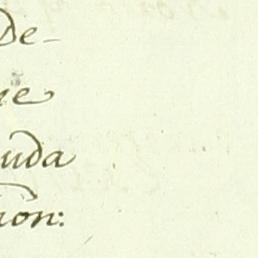 De-
ne
uda
non: